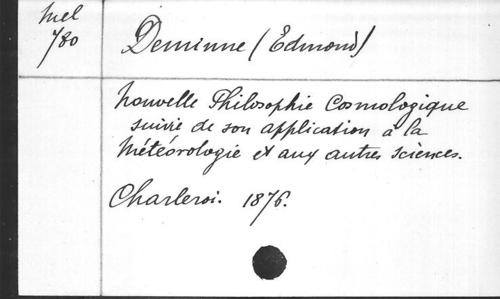 Mel
780
Deminne (Edmond)
Nouvelle Philosophie Cosmologique
suivie de son application à la
Météorologie et aux autres sciences.
Charleroi. 1876.